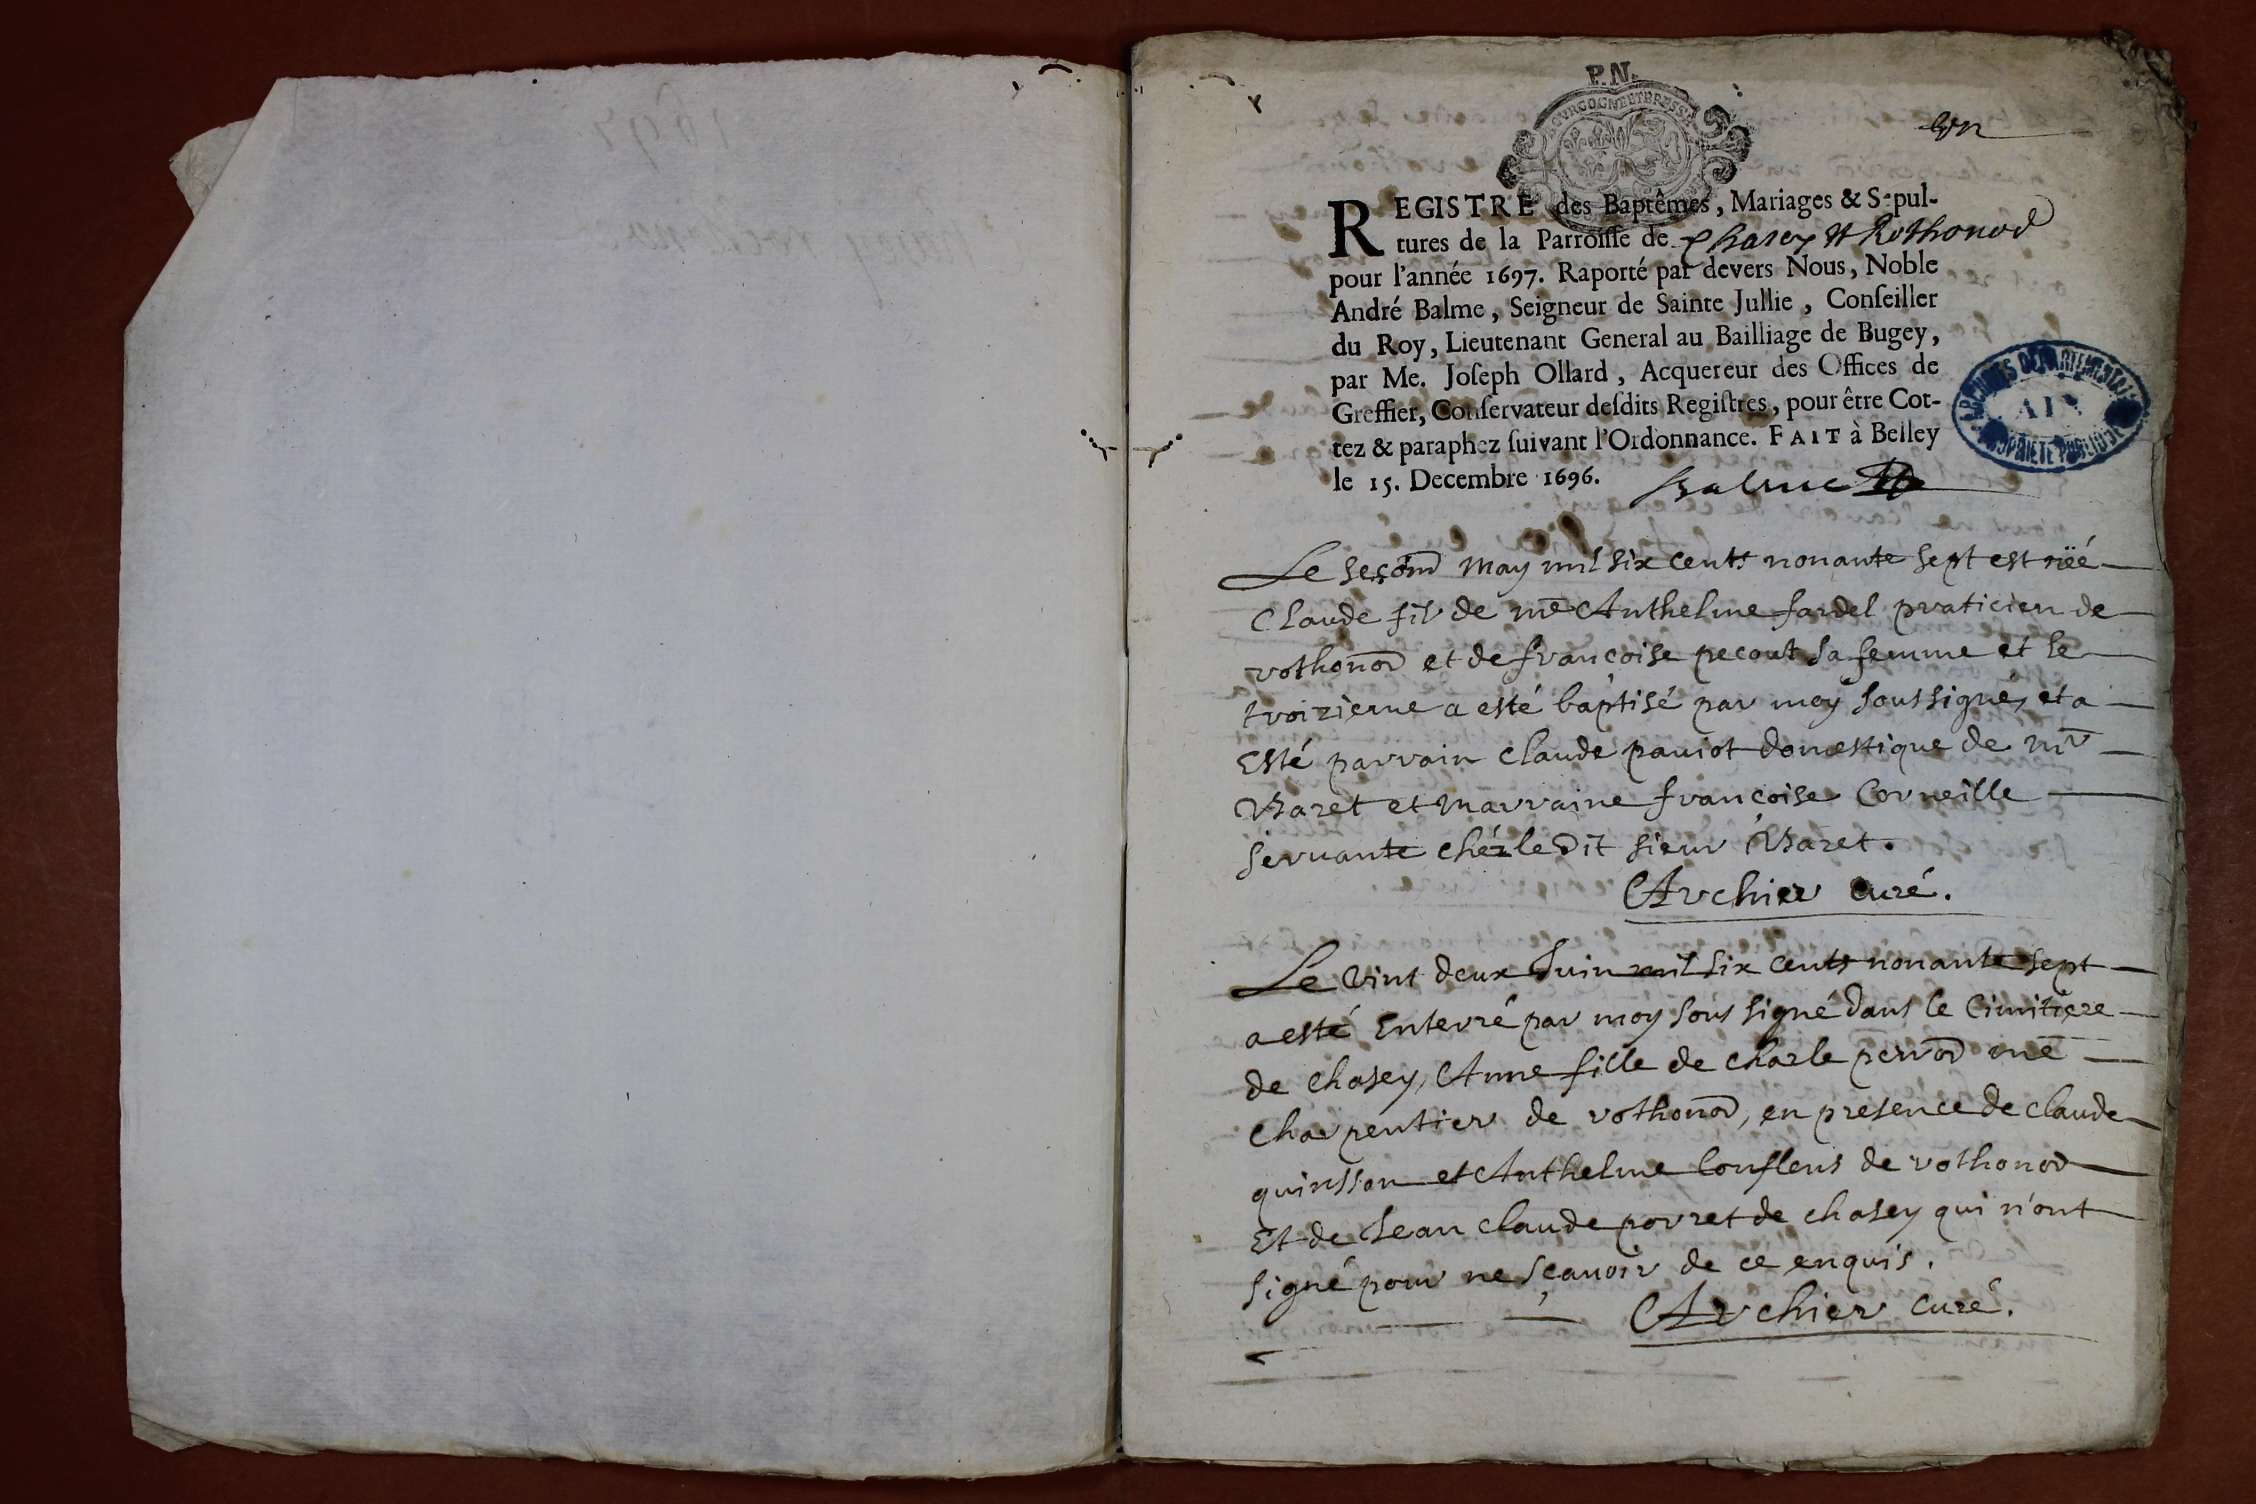 P.N.
BOURGOGNE ET BRESSE
un
REGISTRE des Baptêmes, Mariages & Sepul-
tures de la Parroisse de Chasey et Rothonod
pour l'année 1697. Raporté par devers Nous, Noble
André Balme, Seigneur de Sainte Jullie, Conseiller
du Roy, Lieutenant General au Bailliage de Bugey,
par Me. Joseph Ollard, Acquereur des Offices de
Greffier, Conservateur desdits Registres, pour être Cot-
tez & paraphez suivant l'Ordonnance. FAIT à Belley
le 15. Decembre 1696. Balme
ARCHIVES DEPARTEMENTALES
AIN
PROPRIETE PUBLIQUE
Le second May mil six cents nonante sept est néé
Claude fils de me Anthelme fardel praticien de
rothonod et de françoise pecout sa femme et le
troizieme a esté baptisé par moy soussigné, et a
Esté parrain Claude paviot domestique de mr
Baret et marraine françoise Corneille
servante chéz le Dit sieur Baret.
Archier curé.
Le vint deux Juin mil six cents nonante sept
a esté Enterré par moy sous signé dans le Cimitiere
de Chasey, Anne fille de Charle perrod me
Charpentier de rothonod, en presence de Claude
quinsson et Anthelme Conflens de rothonod
Et de Jean Claude porret de Chasey qui n'ont
signé pour ne sçavoir de ce enquis.
Archier curé.